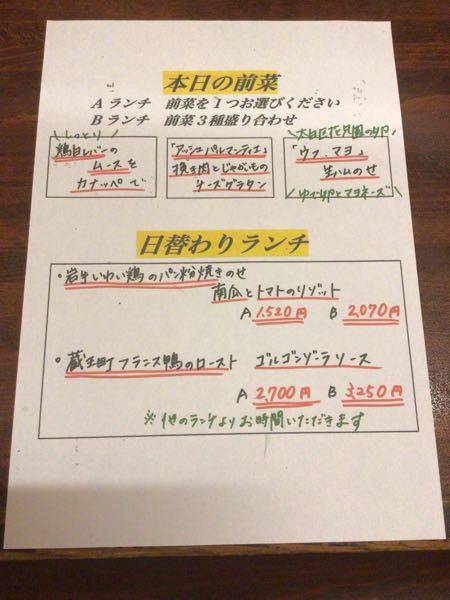 本日の前菜
Aランチ 前菜を1つお選びください
Bランチ 前菜3種盛り合わせ
しっとり
鶏白レバーの
ムースを
カナッペで
「アッシェパルマンティエ」
挽き肉とじゃがいもの
チーズグラタン
大白巨花児園の卵
「ウフ.マヨ」
生ハムのせ
ゆで卵とマヨネーズ
日替わりランチ
・岩手いわい鶏のパン粉焼きのせ
南瓜とトマトのリゾット
A 1,520円 B 2,070円
・蔵王町フランス鴨のロースト ゴルゴンゾーラソース
A 2,700円 B 3,250円
※他のランチよりお時間いただきます